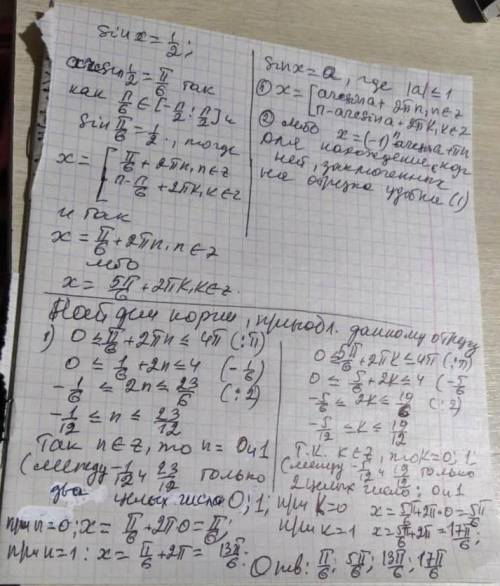 sin x = 1/2;
arcsin 1/2 = π/6 так
как π/6 ∈ [-π/2; π/2] и
sin π/6 = 1/2, тогда
x = [ π/6 + 2πn, n∈z
π - π/6 + 2πk, k∈z
итак
x = π/6 + 2πn, n∈z
либо
x = 5π/6 + 2πk, k∈z.
sin x = a, где |a| ≤ 1
① x = [ arcsin a + 2πn, n∈z
π - arcsin a + 2πk, k∈z
② либо x = (-1)ⁿ arcsin a + πn
для нахождения кор
ней, заключенных
на отрезке удобна (1)
Найдем корни, принадл. данному отрезку
1) 0 ≤ π/6 + 2πn ≤ 4π (:π)
0 ≤ 1/6 + 2n ≤ 4 (-1/6)
-1/6 ≤ 2n ≤ 23/6 (:2)
-1/12 ≤ n ≤ 23/12
Так n∈z, то n = 0 и 1
(между -1/12 и 23/12 только
два целых числа 0; 1;
при n=0; x = π/6 + 2π0 = π/6;
при n=1: x = π/6 + 2π = 13π/6;
0 ≤ 5π/6 + 2πk ≤ 4π (:π)
0 ≤ 5/6 + 2k ≤ 4 (-5/6
-5/6 ≤ 2k ≤ 19/6 (:2)
-5/12 ≤ k ≤ 19/12
Т.к. k∈z, то k = 0; 1;
(между -5/12 и 19/12 только
2 целых число; 0 и 1
при k=0 x = 5π/6 + 2π·0 = 5π/6
при k=1 x = 5π/6 + 2π = 17π/6;
Отв: π/6; 5π/6; 13π/6; 17π/6